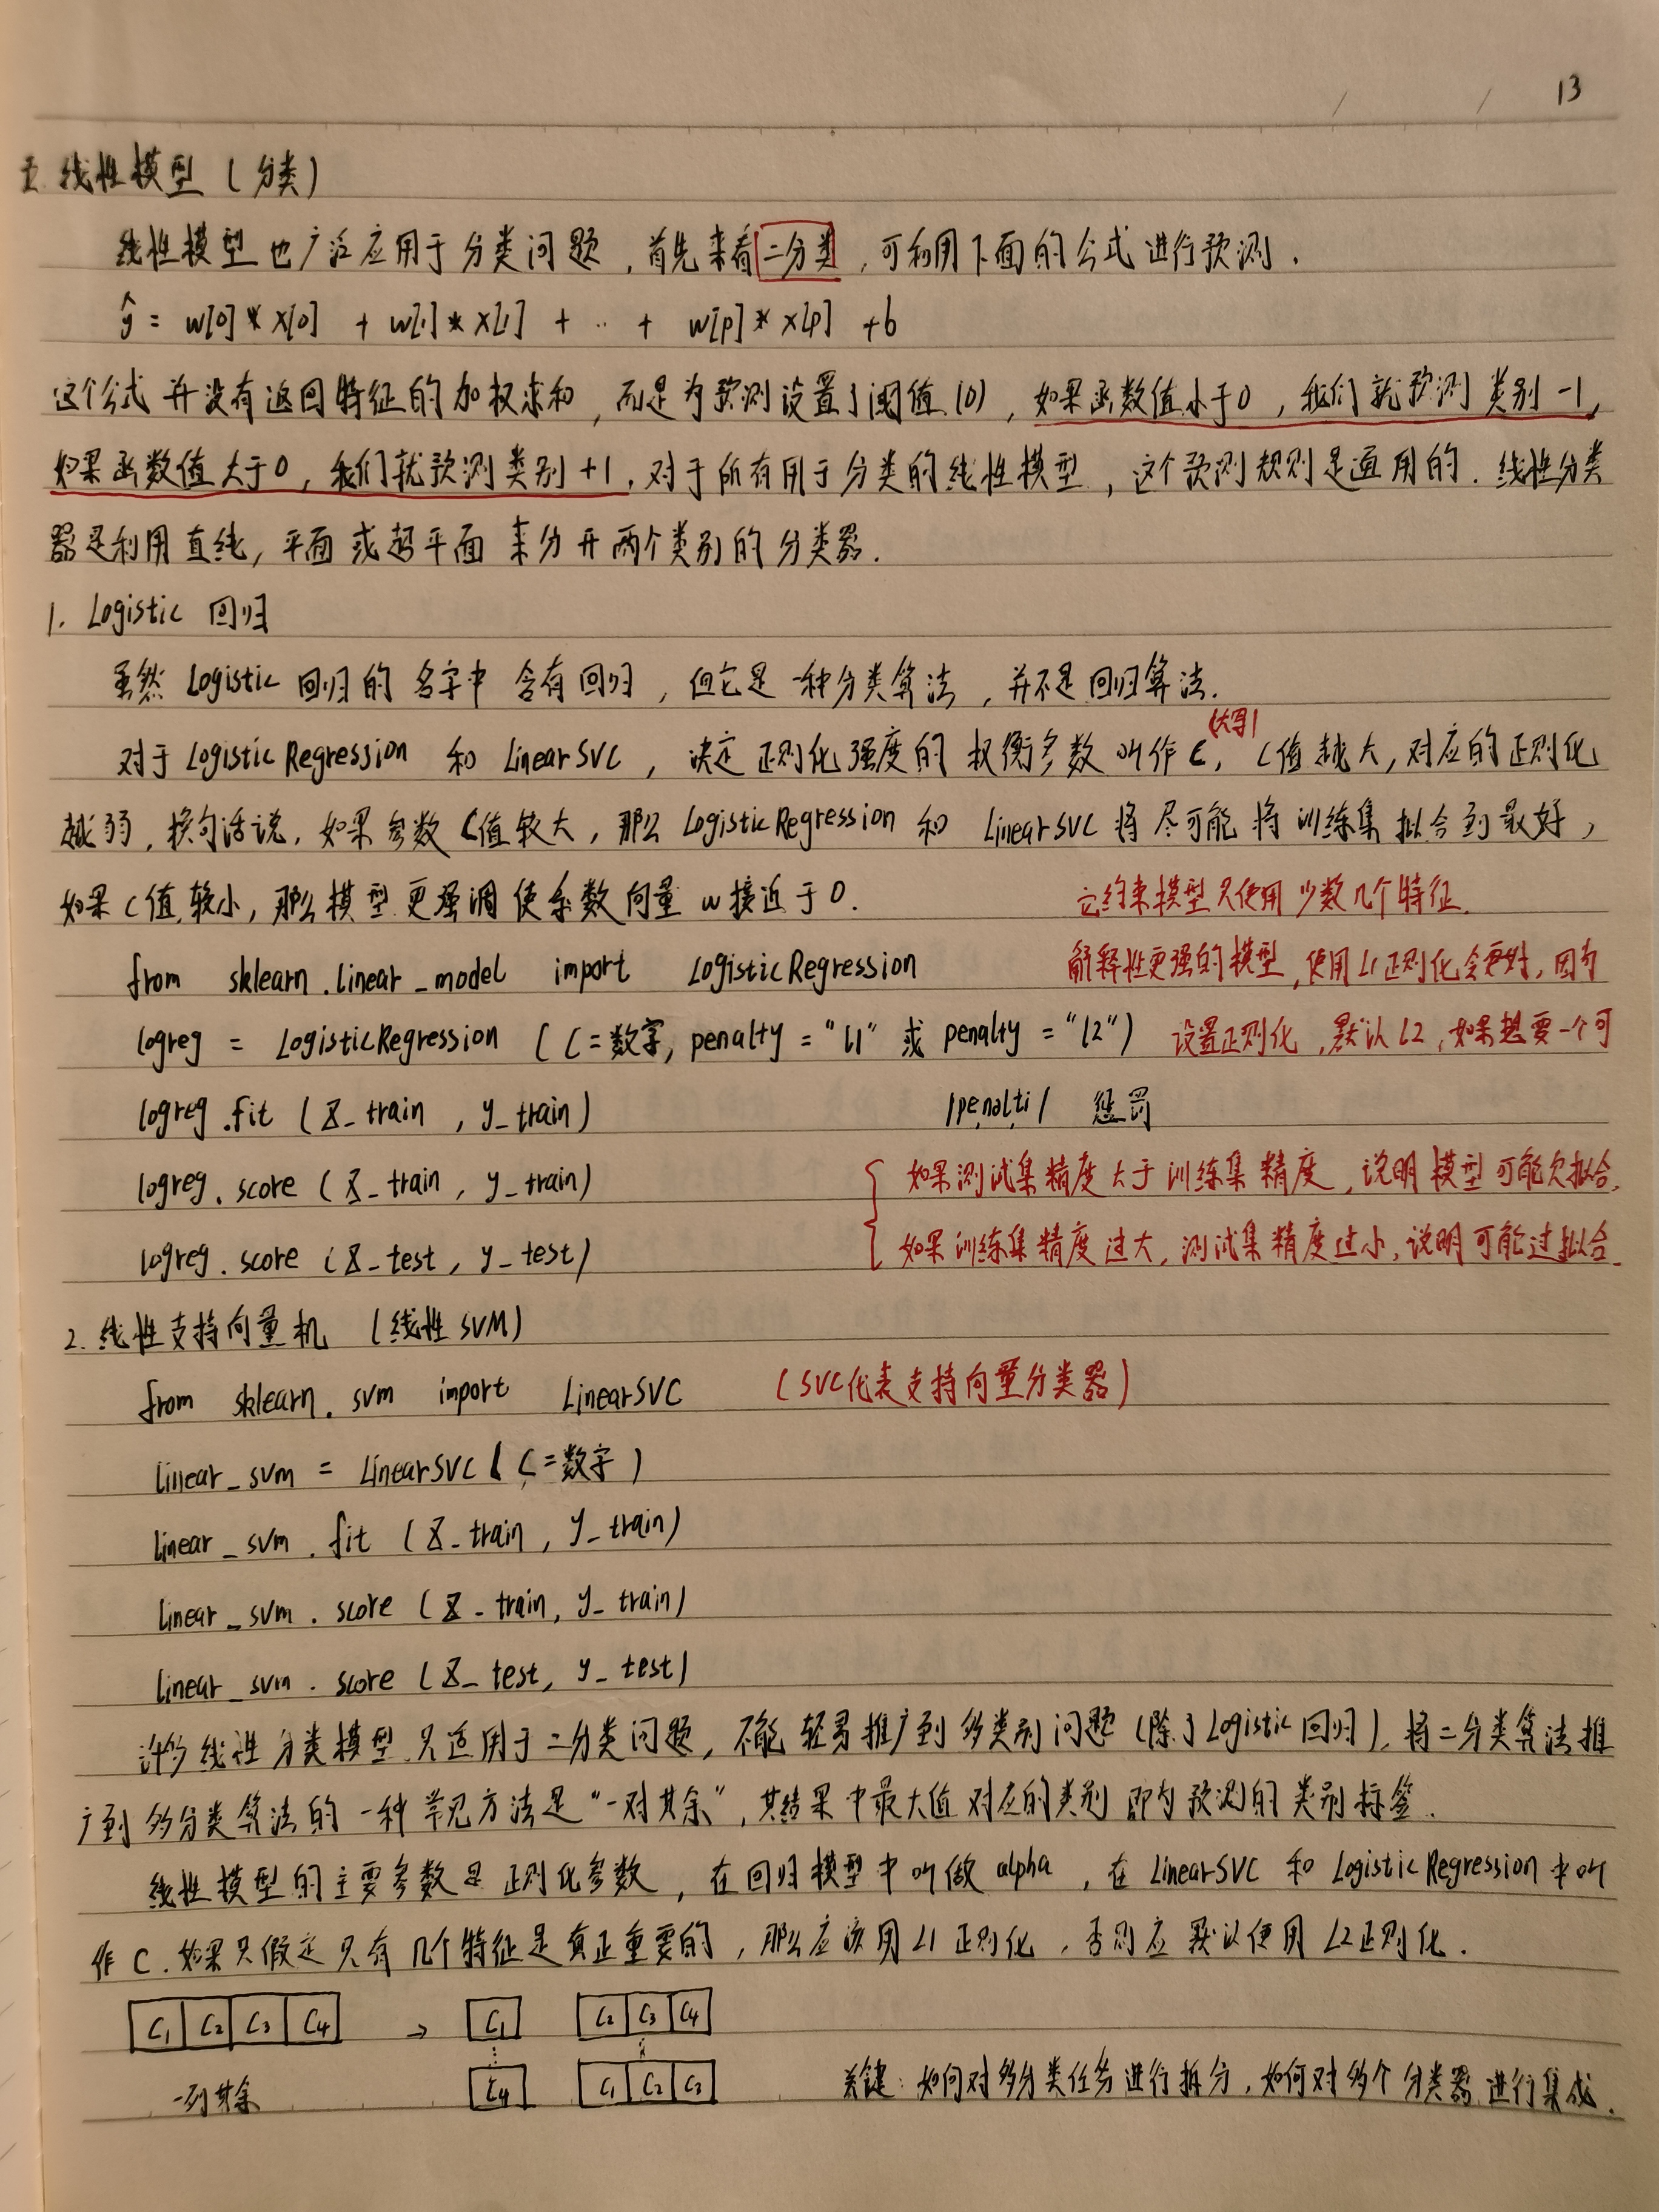 13
五. 线性模型（分类）
线性模型也广泛应用于分类问题，首先来看二分类，可利用下面的公式进行预测.
ŷ = w[0] * x[0] + w[1] * x[1] + ... + w[p] * x[p] + b
这个公式并没有返回特征的加权求和，而是为预测设置了阈值(0)，如果函数值小于0，我们就预测类别-1，
如果函数值大于0，我们就预测类别+1. 对于所有用于分类的线性模型，这个预测规则是通用的. 线性分类
器是利用直线，平面或超平面来分开两个类别的分类器.
1. Logistic 回归
虽然 Logistic 回归的名字中含有回归，但它是一种分类算法，并不是回归算法.
(大写)
对于 Logistic Regression 和 Linear SVC，决定正则化强度的权衡参数叫作C，C值越大，对应的正则化
越弱，换句话说，如果参数C值较大，那么 Logistic Regression 和 Linear SVC 将尽可能将训练集拟合到最好，
如果C值较小，那么模型更强调使系数向量w接近于0.
它约束模型只使用少数几个特征.
from sklearn.linear_model import LogisticRegression 解释性更强的模型，使用L1正则化会更好，因为
logreg = LogisticRegression (C=数字, penalty = "l1" 或 penalty = "l2") 设置正则化，默认L2，如果想要一个可
logreg.fit (X_train , y_train) /penalti/ 惩罚
logreg.score (X_train , y_train) 如果测试集精度大于训练集精度，说明模型可能欠拟合.
logreg.score (X_test , y_test) 如果训练集精度过大，测试集精度过小，说明可能过拟合.
2. 线性支持向量机（线性SVM）
from sklearn.svm import LinearSVC （SVC代表支持向量分类器）
linear_svm = LinearSVC (C=数字)
linear_svm.fit (X_train , y_train)
linear_svm.score (X_train, y_train)
linear_svm.score (X_test, y_test)
许多线性分类模型只适用于二分类问题，不能轻易推广到多类别问题（除了Logistic回归）. 将二分类算法推
广到多分类算法的一种常见方法是“一对其余”，其结果中最大值对应的类别即为预测的类别标签.
线性模型的主要参数是正则化参数，在回归模型中叫做 alpha，在 LinearSVC 和 Logistic Regression 中叫
作C. 如果只假定只有几个特征是真正重要的，那么应该用L1正则化，否则应默认使用L2正则化.
C1 C2 C3 C4 → C1 C2 C3 C4
C4 C1 C2 C3
一对其余 关键：如何对多分类任务进行拆分，如何对多个分类器进行集成.